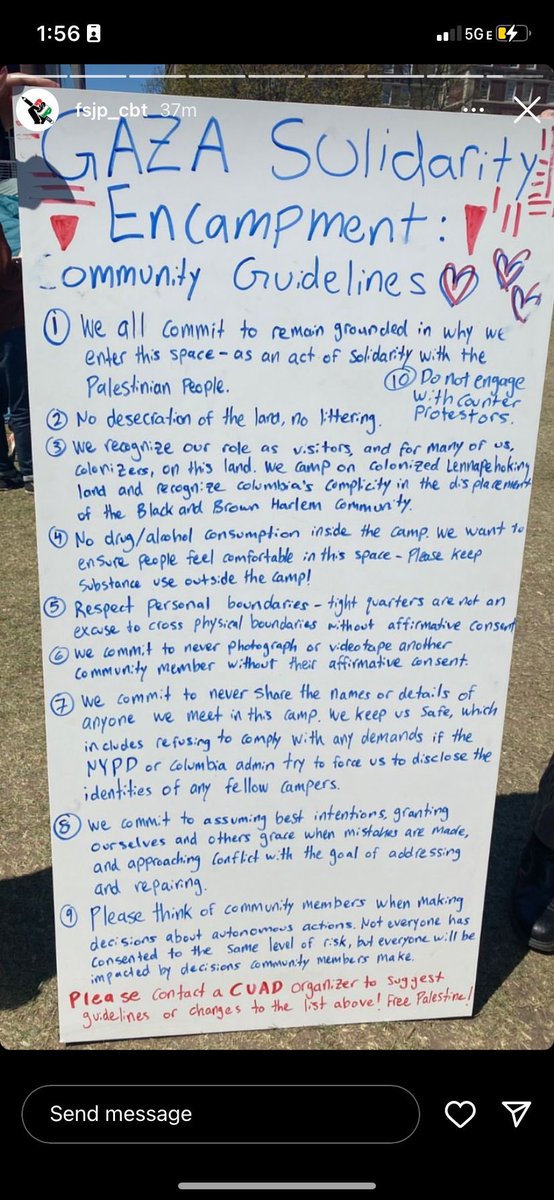 1:56
5GE
fsjp_cbt 37m
GAZA Solidarity
Encampment:
Community Guidelines
① We all commit to remain grounded in why we
enter this space - as an act of solidarity with the
Palestinian People.
② No desecration of the land, no littering.
③ We recognize our role as visitors, and for many of us,
colonizers, on this land. We camp on colonized Lennapehoking
land and recognize Columbia's complicity in the displacement
of the Black and Brown Harlem Community.
④ No drug/alcohol consumption inside the camp. We want to
ensure people feel comfortable in this space - Please keep
substance use outside the camp!
⑤ Respect Personal boundaries - tight quarters are not an
excuse to cross physical boundaries without affirmative consent
⑥ We commit to never photograph or videotape another
community member without their affirmative consent.
⑦ We commit to never share the names or details of
anyone we meet in this camp. We keep us safe, which
includes refusing to comply with any demands if the
NYPD or Columbia admin try to force us to disclose the
identities of any fellow campers.
⑧ We commit to assuming best intentions, granting
ourselves and others grace when mistakes are made,
and approaching conflict with the goal of addressing
and repairing.
⑨ Please think of community members when making
decisions about autonomous actions. Not everyone has
consented to the same level of risk, but everyone will be
impacted by decisions community members make.
⑩ Do not engage
with counter
Protestors.
Please contact a CUAD organizer to suggest
guidelines or changes to the list above! Free Palestine!
Send message